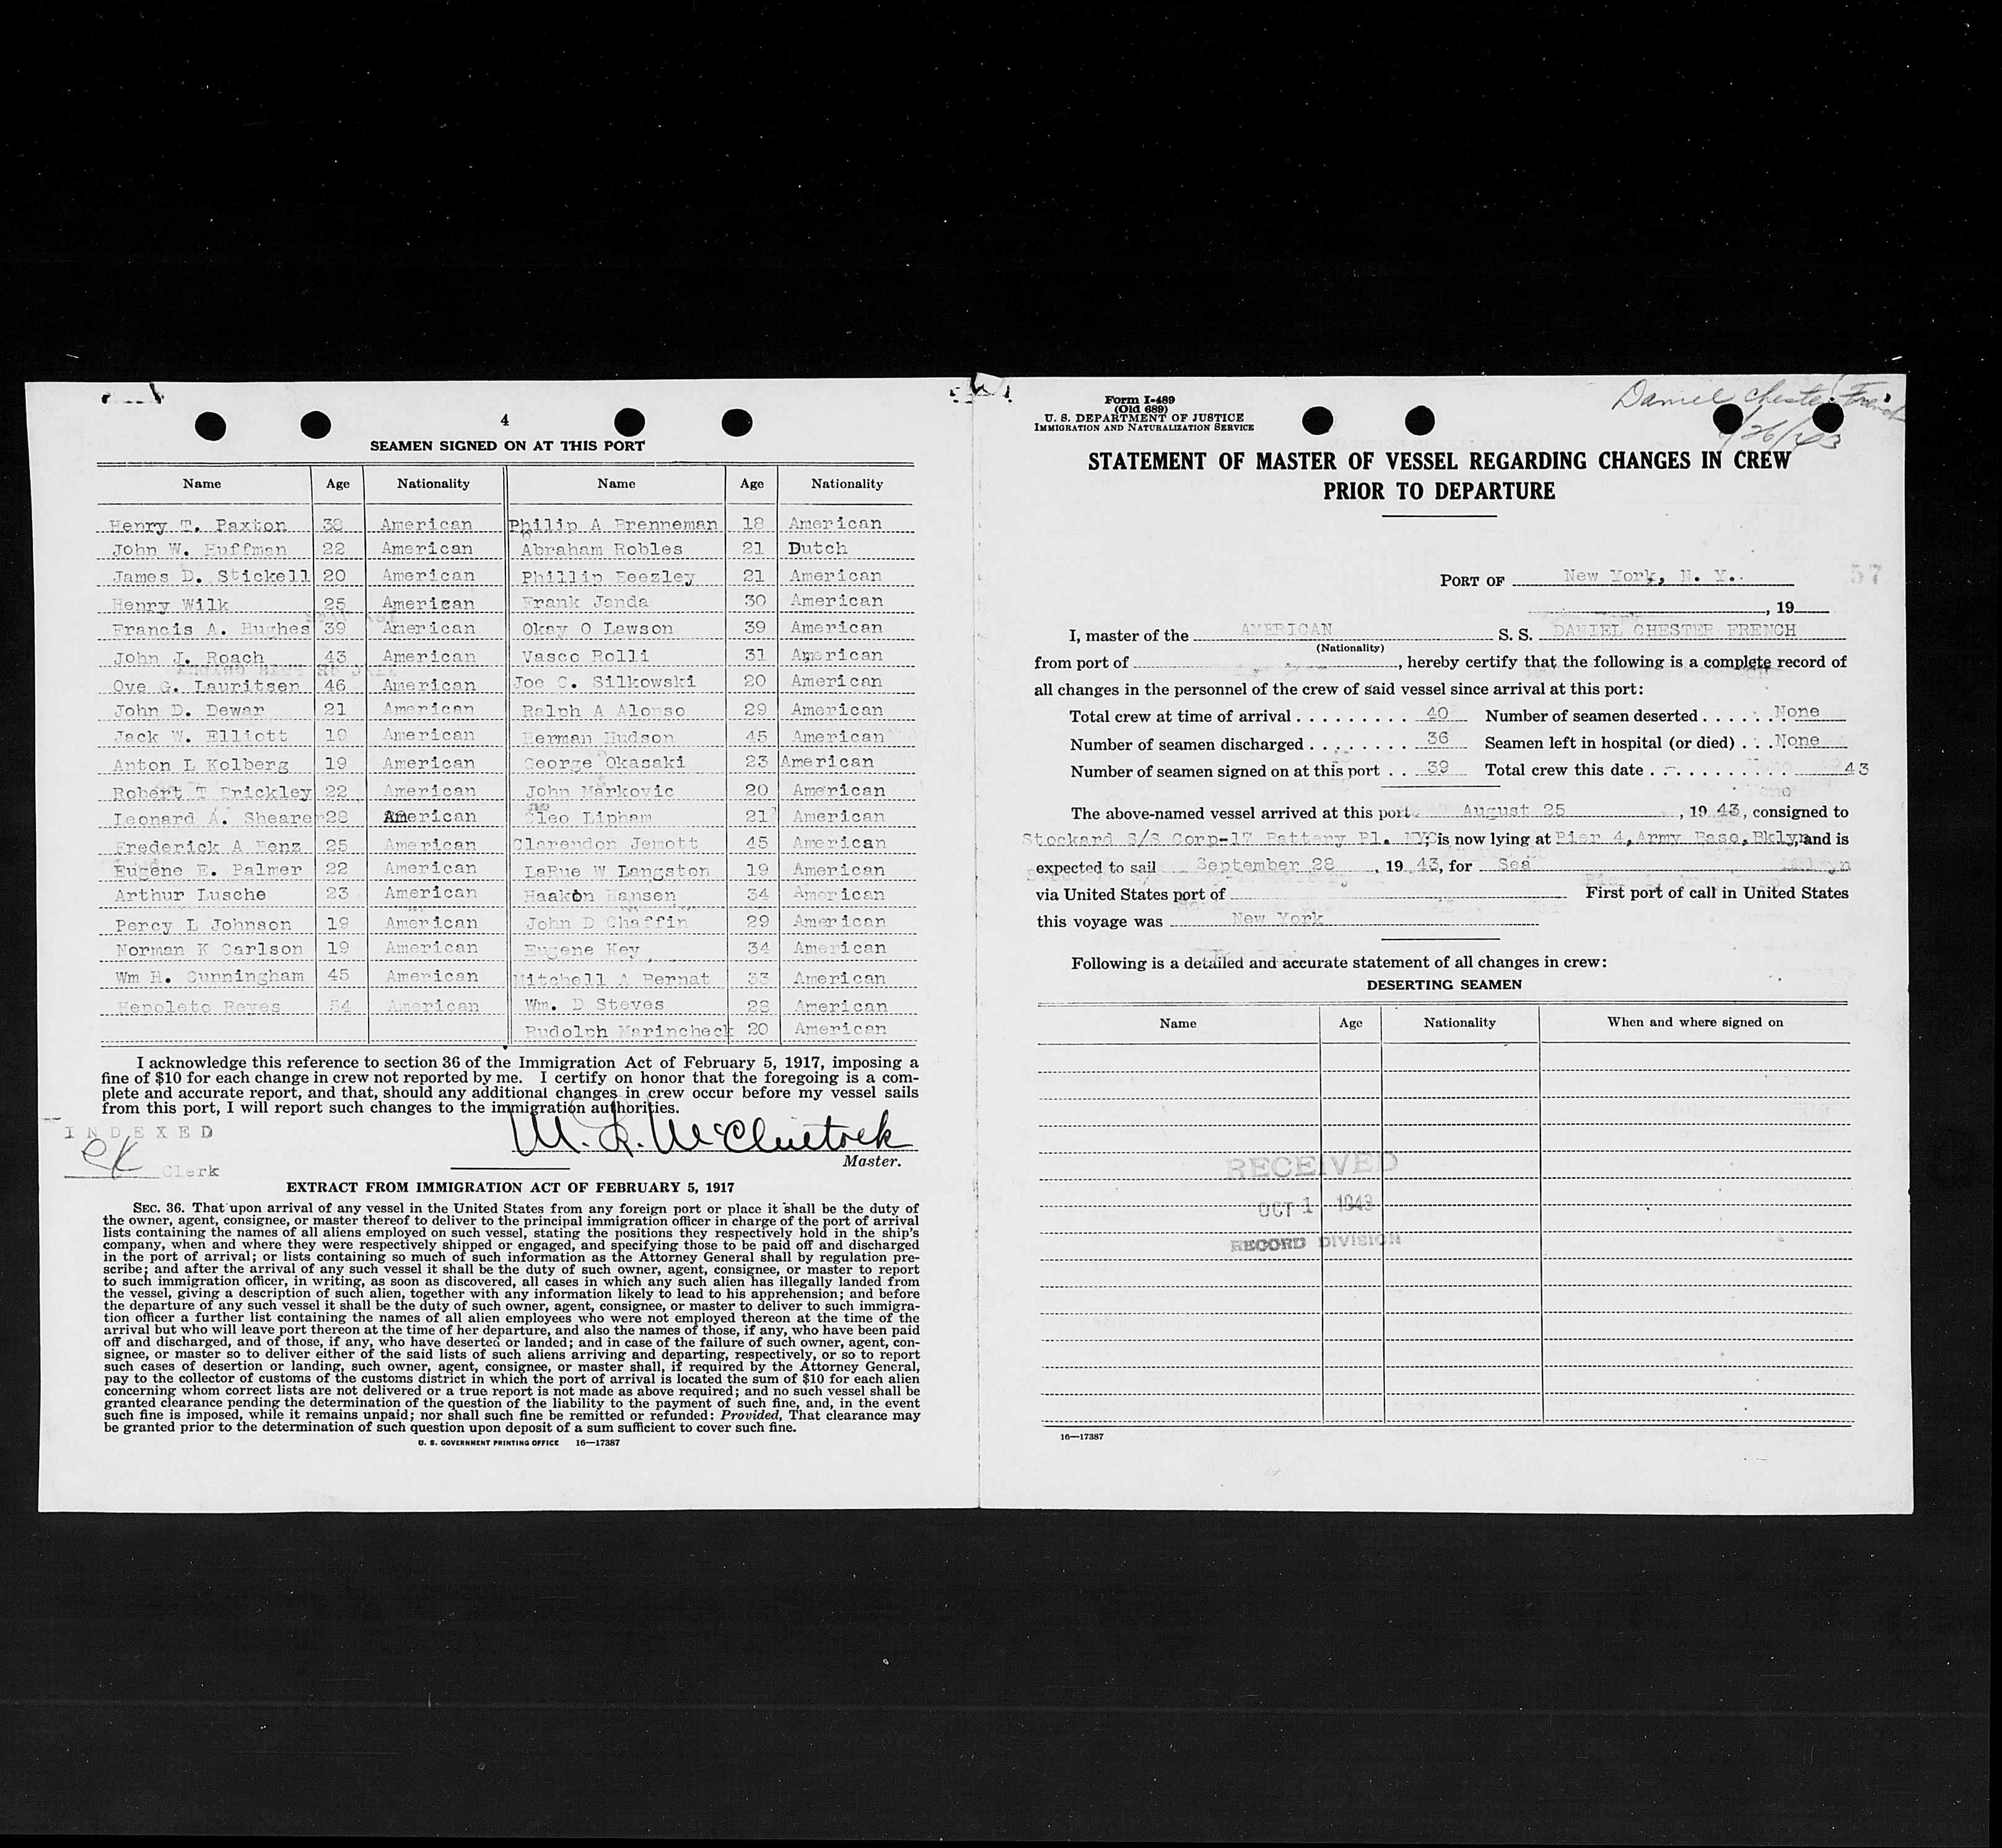 4
SEAMEN SIGNED ON AT THIS PORT
Name Age Nationality Name Age Nationality
Henry T. Paxton 38 American Philip A Brenneman 18 American
John W. Huffman 22 American Abraham Robles 21 Dutch
James D. Stickell 20 American Phillip Beezley 21 American
Henry Wilk 25 American Frank Janda 30 American
Francis A. Hughes 39 American Okay O Lawson 39 American
John J. Roach 43 American Vasco Rolli 31 American
Ove G. Lauritsen 46 American Joe C. Silkowski 20 American
John D. Dewar 21 American Ralph A Alonso 29 American
Jack W. Elliott 19 American Herman Hudson 45 American
Anton L Kolberg 19 American George Okasaki 23 American
Robert T Brickley 22 American John Markovic 20 American
Leonard A. Shearer 28 American Cleo Lipham 21 American
Frederick A Benz 25 American Clarendon Jemott 45 American
Eugene E. Palmer 22 American LaRue W Langston 19 American
Arthur Lusche 23 American Haakon Hansen 34 American
Percy L Johnson 19 American John D Chaffin 29 American
Norman K Carlson 19 American Eugene Key 34 American
Wm H. Cunningham 45 American Mitchell A Bernat 33 American
Henoleto Reyes 54 American Wm. D Steves 28 American
Rudolph Marincheck 20 American
I acknowledge this reference to section 36 of the Immigration Act of February 5, 1917, imposing a
fine of $10 for each change in crew not reported by me. I certify on honor that the foregoing is a com-
plete and accurate report, and that, should any additional changes in crew occur before my vessel sails
from this port, I will report such changes to the immigration authorities.
INDEXED
Clerk
M. R. McClintock
Master.
EXTRACT FROM IMMIGRATION ACT OF FEBRUARY 5, 1917
SEC. 36. That upon arrival of any vessel in the United States from any foreign port or place it shall be the duty of
the owner, agent, consignee, or master thereof to deliver to the principal immigration officer in charge of the port of arrival
lists containing the names of all aliens employed on such vessel, stating the positions they respectively hold in the ship's
company, when and where they were respectively shipped or engaged, and specifying those to be paid off and discharged
in the port of arrival; or lists containing so much of such information as the Attorney General shall by regulation pre-
scribe; and after the arrival of any such vessel it shall be the duty of such owner, agent, consignee, or master to report
to such immigration officer, in writing, as soon as discovered, all cases in which any such alien has illegally landed from
the vessel, giving a description of such alien, together with any information likely to lead to his apprehension; and before
the departure of any such vessel it shall be the duty of such owner, agent, consignee, or master to deliver to such immigra-
tion officer a further list containing the names of all alien employees who were not employed thereon at the time of the
arrival but who will leave port thereon at the time of her departure, and also the names of those, if any, who have been paid
off and discharged, and of those, if any, who have deserted or landed; and in case of the failure of such owner, agent, con-
signee, or master so to deliver either of the said lists of such aliens arriving and departing, respectively, or so to report
such cases of desertion or landing, such owner, agent, consignee, or master shall, if required by the Attorney General,
pay to the collector of customs of the customs district in which the port of arrival is located the sum of $10 for each alien
concerning whom correct lists are not delivered or a true report is not made as above required; and no such vessel shall be
granted clearance pending the determination of the question of the liability to the payment of such fine, and, in the event
such fine is imposed, while it remains unpaid; nor shall such fine be remitted or refunded: Provided, That clearance may
be granted prior to the determination of such question upon deposit of a sum sufficient to cover such fine.
U. S. GOVERNMENT PRINTING OFFICE 16—17387
Form I-489
(Old 689)
U. S. DEPARTMENT OF JUSTICE
IMMIGRATION AND NATURALIZATION SERVICE
Daniel Chester French
STATEMENT OF MASTER OF VESSEL REGARDING CHANGES IN CREW
PRIOR TO DEPARTURE
PORT OF New York, N. Y. 57
, 19
I, master of the AMERICAN S. S. DANIEL CHESTER FRENCH
(Nationality)
from port of , hereby certify that the following is a complete record of
all changes in the personnel of the crew of said vessel since arrival at this port:
Total crew at time of arrival . . . . . . . . . 40 Number of seamen deserted . . . . . . None
Number of seamen discharged . . . . . . . . 36 Seamen left in hospital (or died) . . . None
Number of seamen signed on at this port . . 39 Total crew this date . . . . . . . . . . . 43
The above-named vessel arrived at this port August 25, 19 43, consigned to
Stockard S/S Corp-17 Battery Pl. NYC; is now lying at Pier 4, Army Base, Bklyn, and is
expected to sail September 28, 19 43, for Sea
via United States port of First port of call in United States
this voyage was New York
Following is a detailed and accurate statement of all changes in crew:
DESERTING SEAMEN
Name Age Nationality When and where signed on
RECEIVED
OCT 1 1943
RECORD DIVISION
16—17387